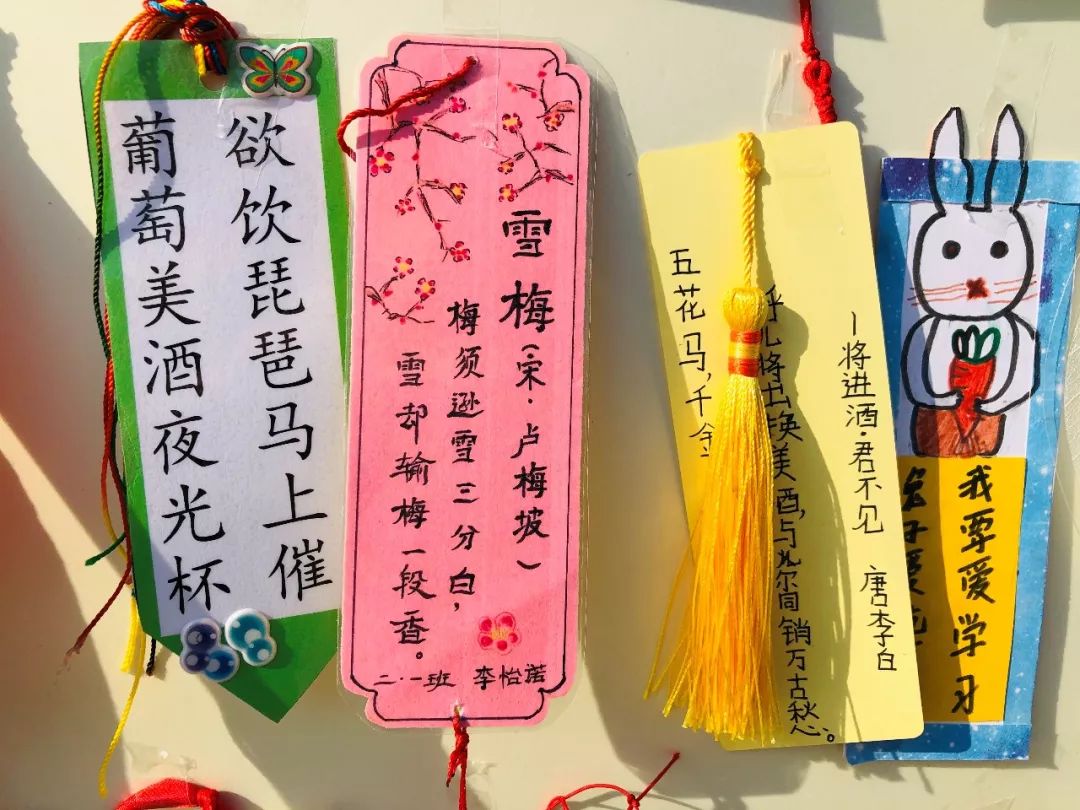 葡萄美酒夜光杯
欲饮琵琶马上催
雪梅（宋·卢梅坡）
梅须逊雪三分白，
雪却输梅一段香。
二·一班 李怡诺
五花马，千金
呼儿将出换美酒，与尔同销万古愁。
—将进酒·君不见 唐李白
我要爱学习
兔子爱